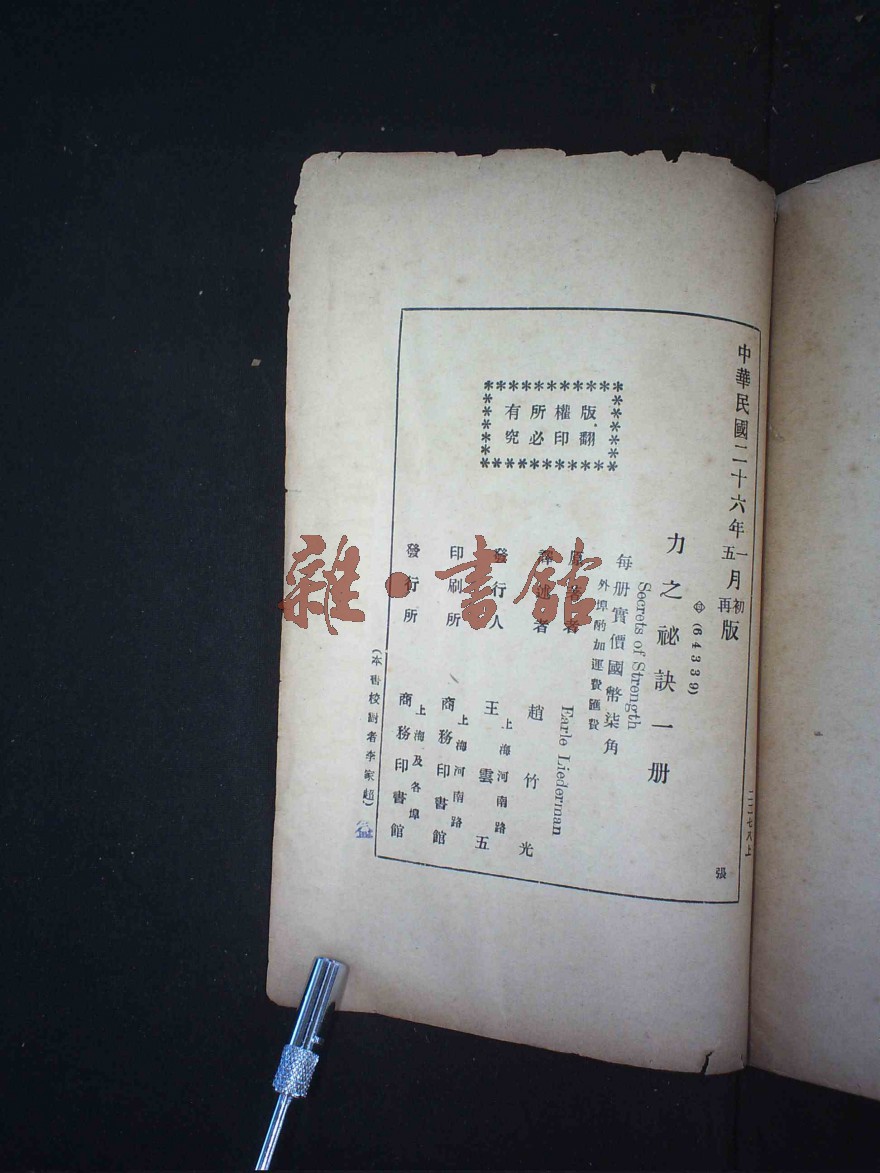 中華民國二十六年一月初版
五 再
二二七八上
張
⊕(64339)
力之祕訣一册
Secrets of Strength
每册實價國幣柒角
外埠酌加運費匯費
原著者 Earle Liederman
譯述者 趙竹光
發行人 王雲五
上海河南路
印刷所 商務印書館
上海河南路
發行所 商務印書館
上海及各埠
版權所有
翻印必究
(本書校對者李家超)
雜·書館